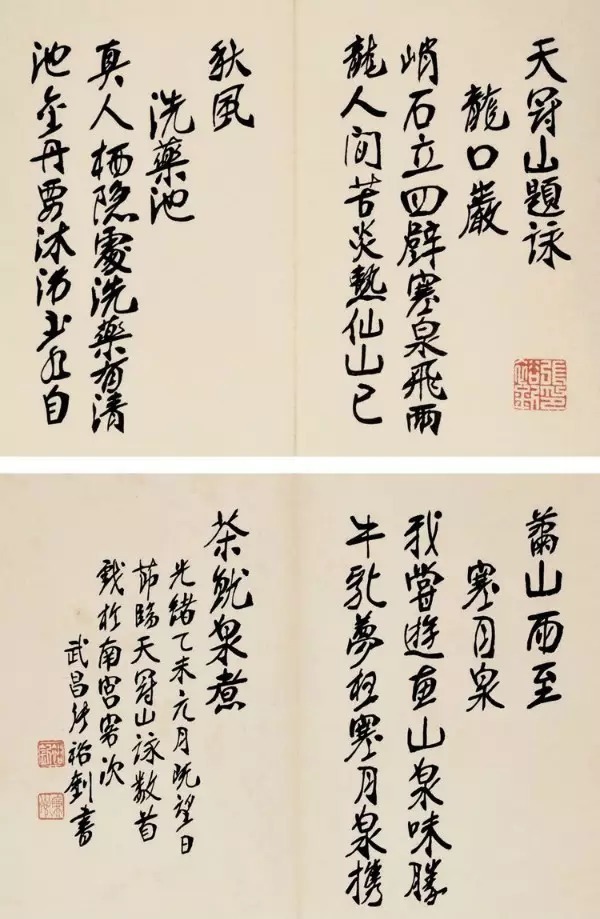 天冠山題詠
龍口巖
峭石立四壁寒泉飛兩
龍人間苦炎熱仙山已
秋風
洗藥池
真人栖隐處洗藥有清
池金丹要沐浴玉水自
蕭山雨至
寒月泉
我嘗遊惠山泉味勝
牛乳夢想寒月泉攜
茶就泉煮
光緒乙未元月既望日
節臨天冠山詠數首
戲於南宮客次
武昌張裕釗書